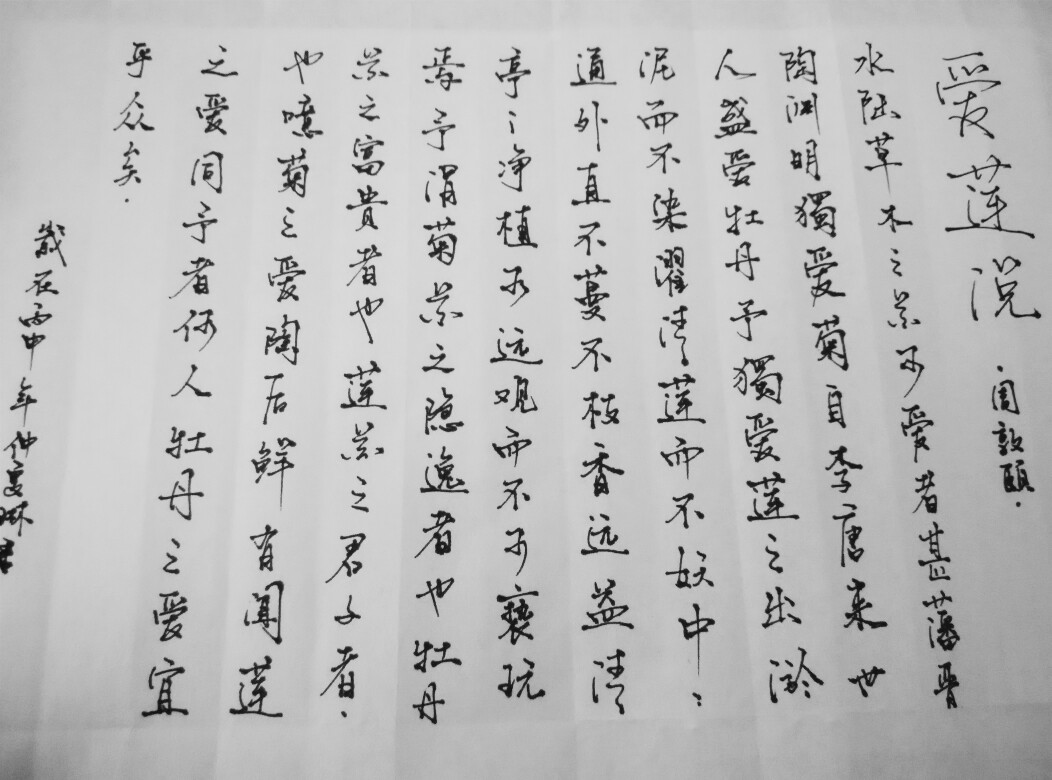 愛莲说
周敦颐.
水陆草木之芸可爱者甚蕃晋
陶渊明獨爱菊自李唐来世
人盛爱牡丹予獨爱莲之出淤
泥而不染濯清莲而不妖中:
通外直不蔓不枝香远益清
亭:净植可远观而不可亵玩
焉予谓菊芸之隐逸者也牡丹
芸之富贵者也莲芸之君子者.
也噫菊之爱陶后鲜有闻莲
之爱同予者何人牡丹之爱宜
乎众矣.
歲在丙申年仲夏